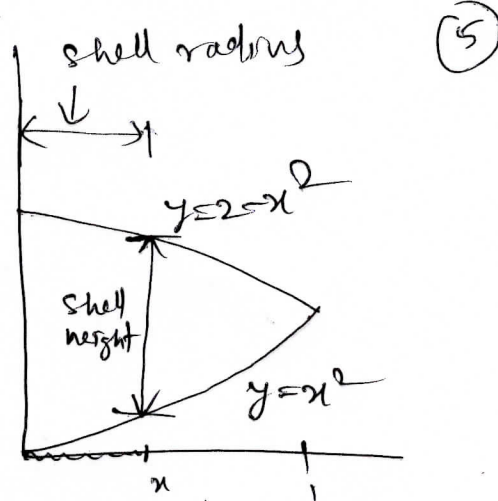 shell radius
5
y=2-x²
shell
height
y=x²
x
1